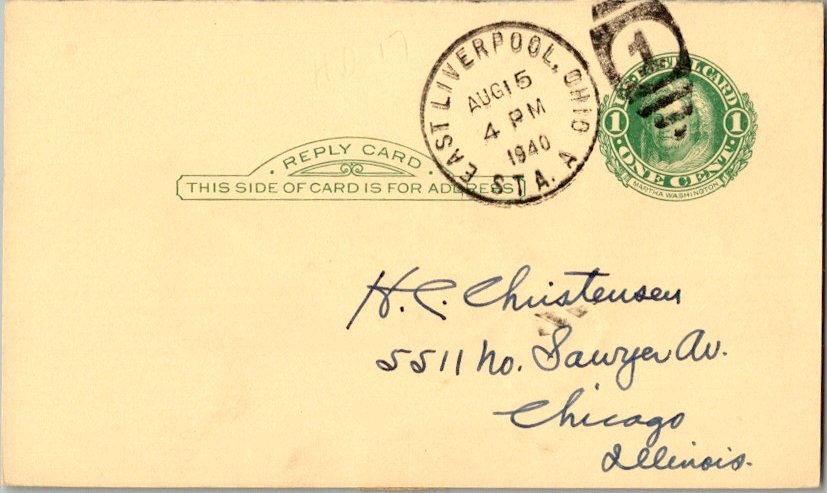 H.D. 17
EAST LIVERPOOL, OHIO
AUG 15
4 PM
1940
STA. A
1
U.S. POSTAL CARD
1 1
ONE CENT
MARTHA WASHINGTON
REPLY CARD
THIS SIDE OF CARD IS FOR ADDRESS
H. C. Christensen
5511 No. Sawyer Av.
Chicago
Illinois.